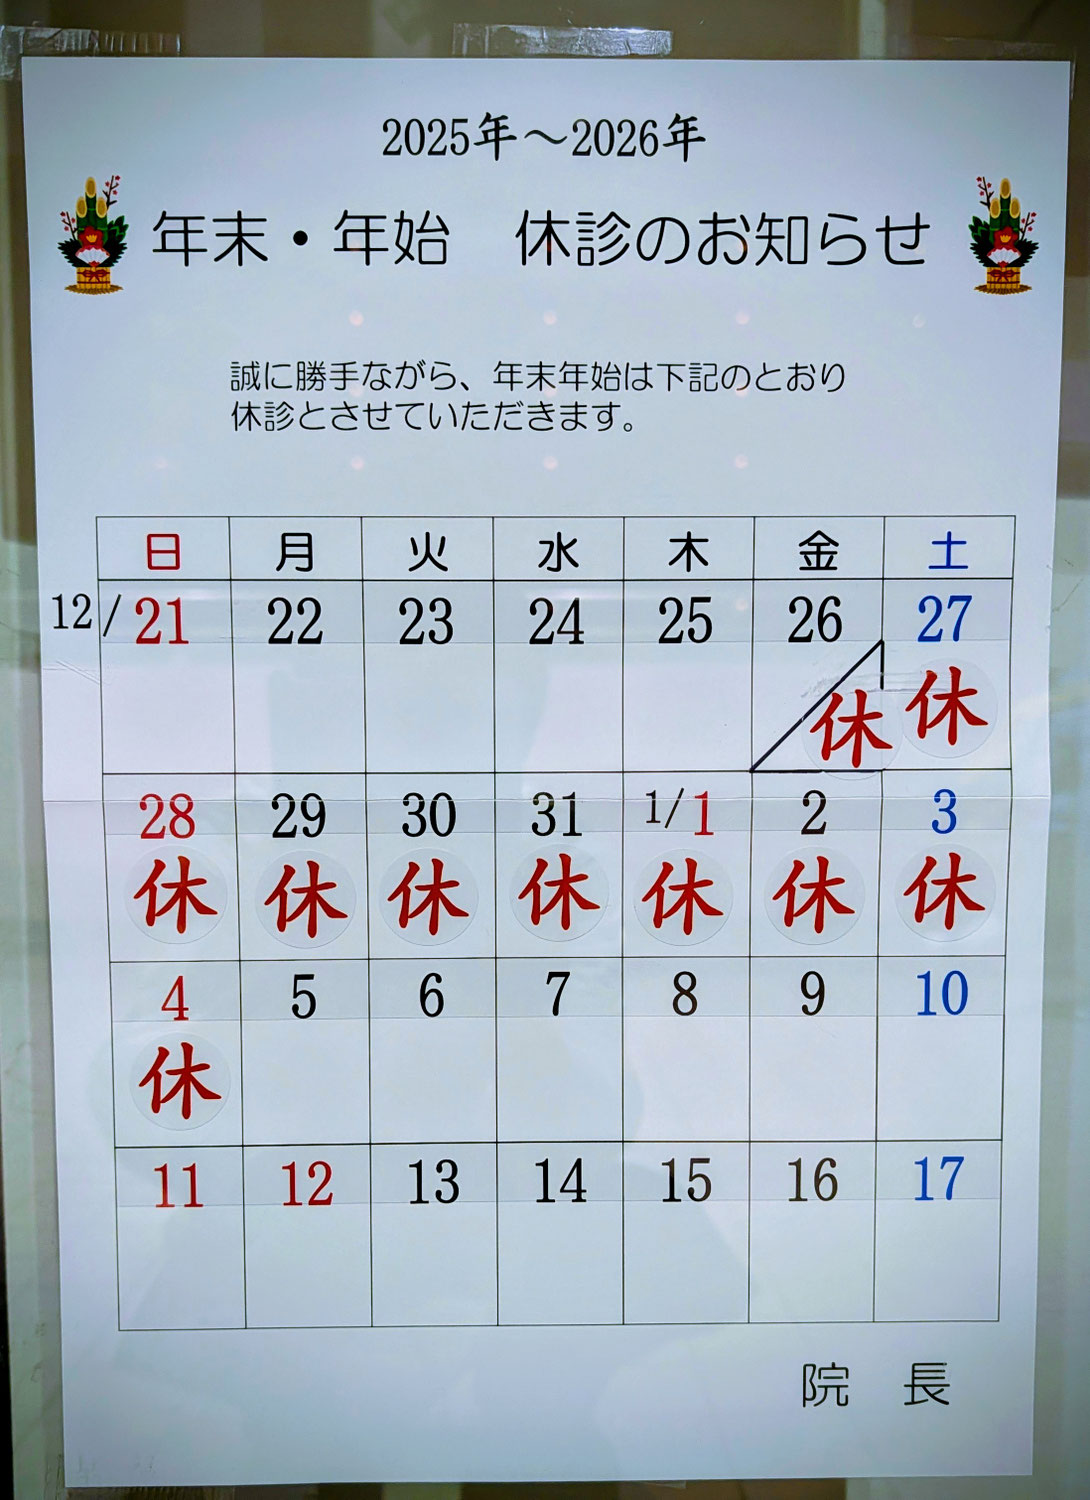 2025年～2026年
年末・年始　休診のお知らせ
誠に勝手ながら、年末年始は下記のとおり
休診とさせていただきます。
日 月 火 水 木 金 土
12/21 22 23 24 25 26 27
休 休
28 29 30 31 1/1 2 3
休 休 休 休 休 休 休
4 5 6 7 8 9 10
休
11 12 13 14 15 16 17
院　長